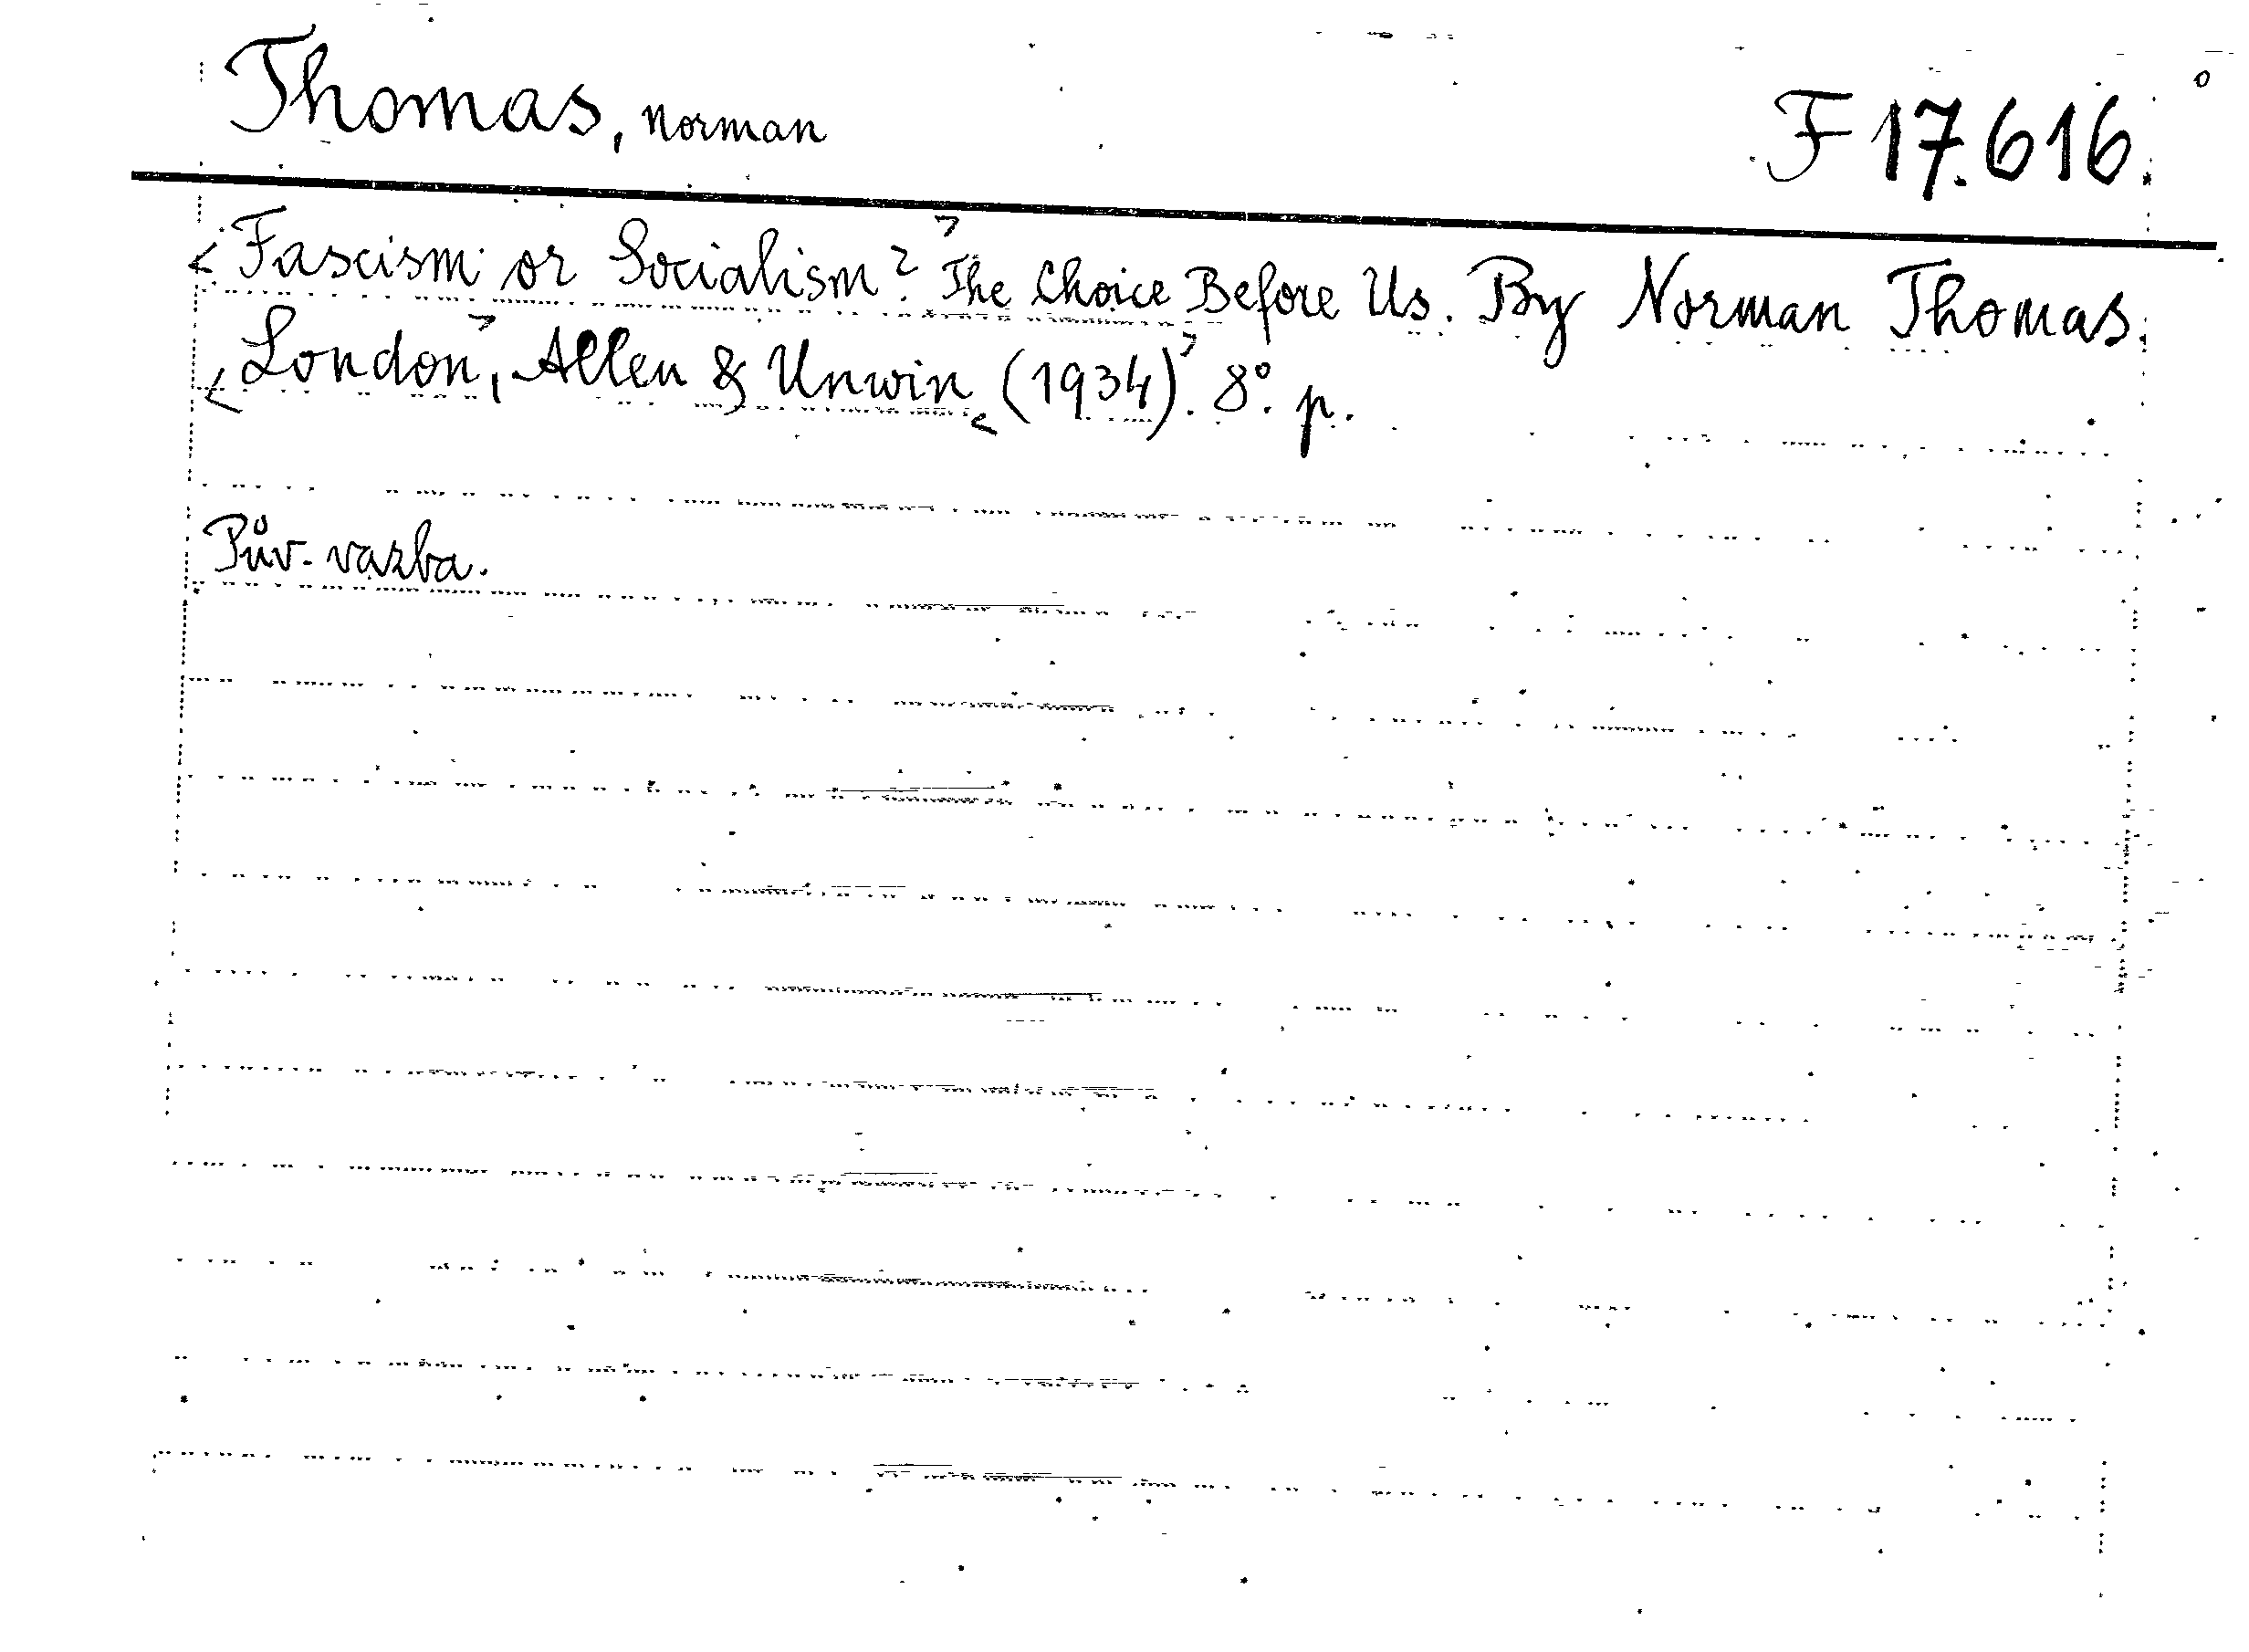 Thomas, Norman F 17.616.
<Fascism or Socialism?> The Choice Before Us. By Norman Thomas.
<London>, Allen & Unwin <(1934)>. 8°. p.
Pův. vazba.